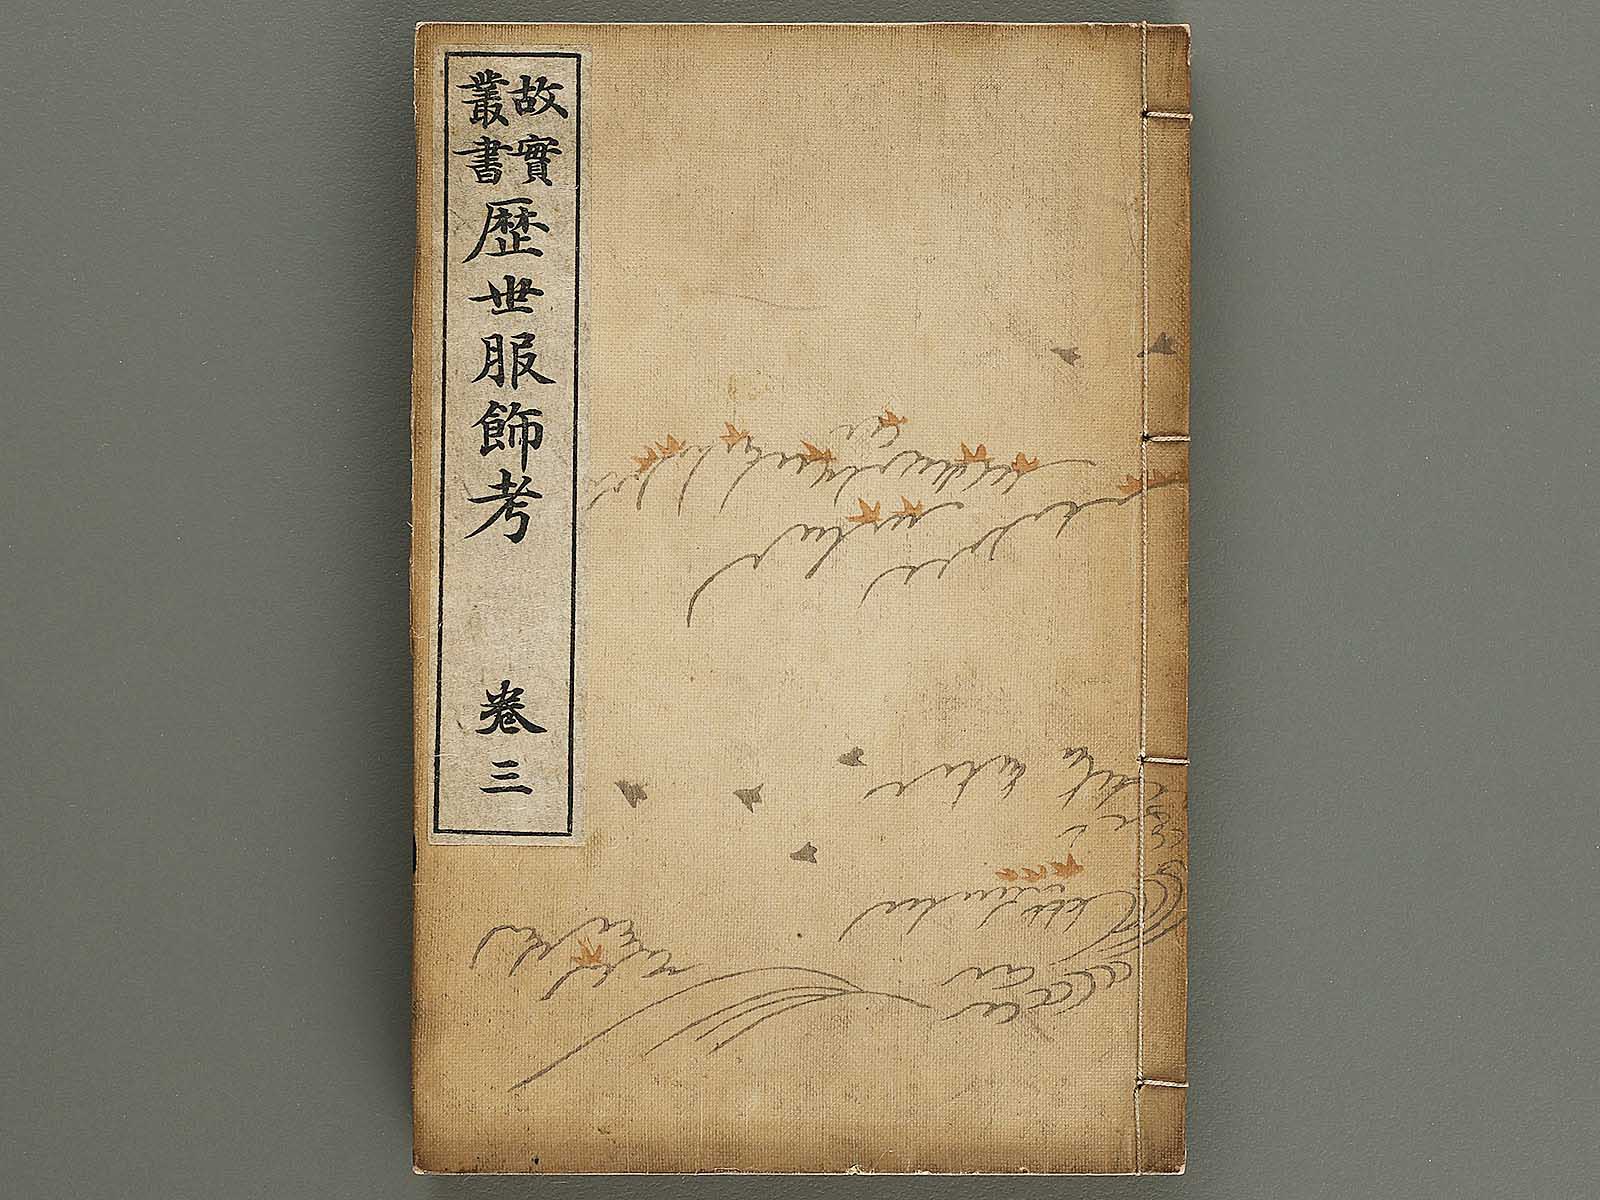 故實
叢書
歴世服飾考
卷三